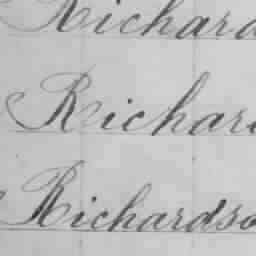 Richard
Richar
Richardso